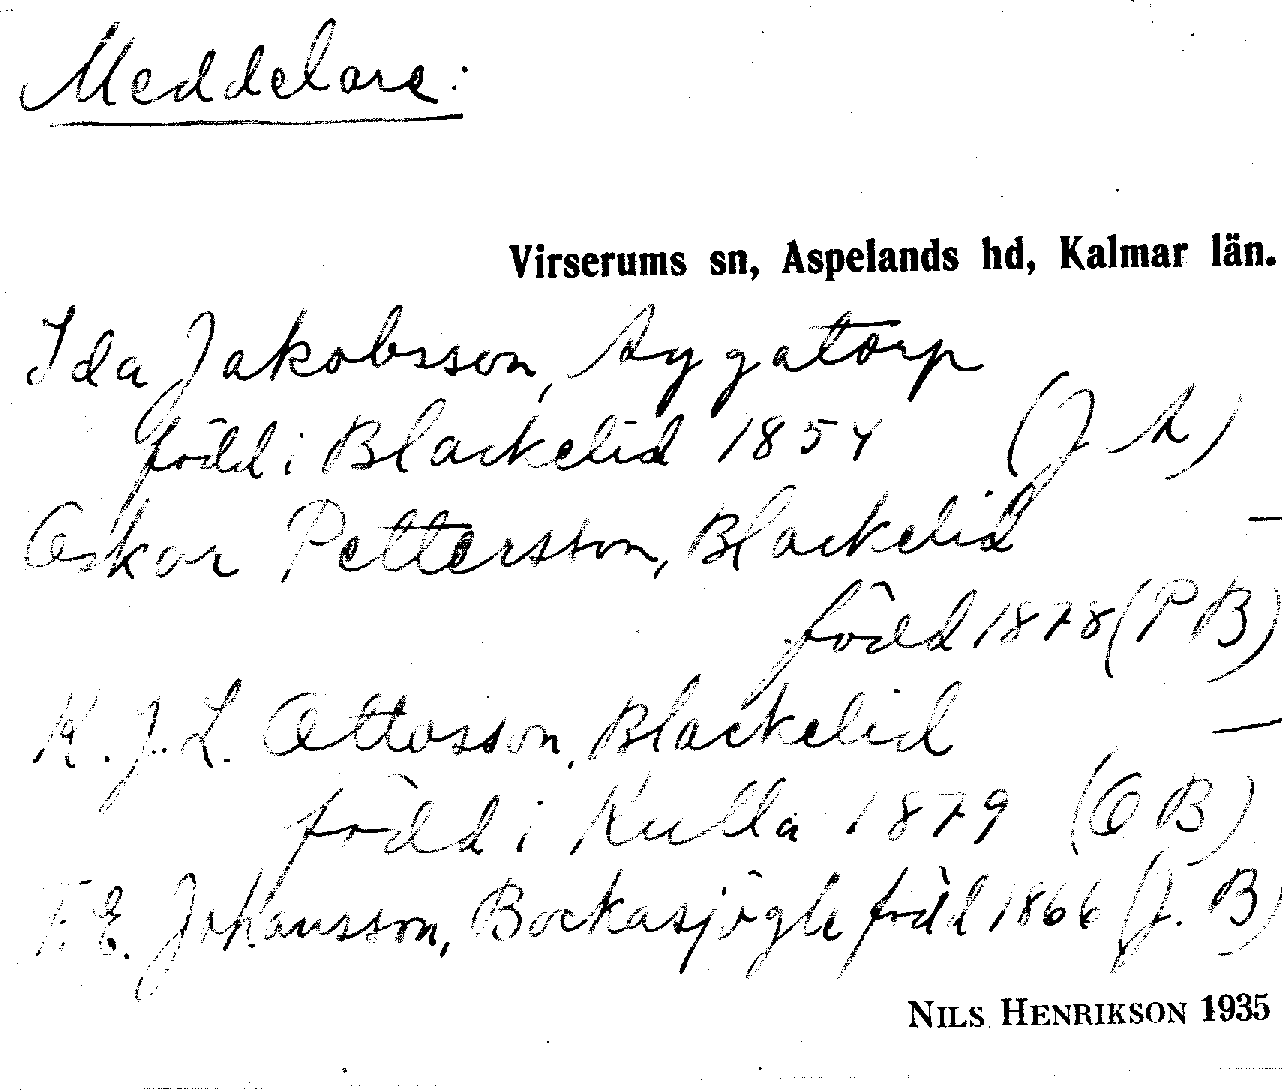 Meddelare:
Virserums sn, Aspelands hd, Kalmar län.
Ida Jakobsson, Aggatorp
född i Blackelid 1854 (J A)
Oskar Pettersson, Blackelid –
född 1878 (P B)
K. J. L. Ottosson, Blackelid –
född i Kulla 1879 (O B)
F. E. Johansson, Bockasjögle född 1866 (J. B)
NILS HENRIKSON 1935